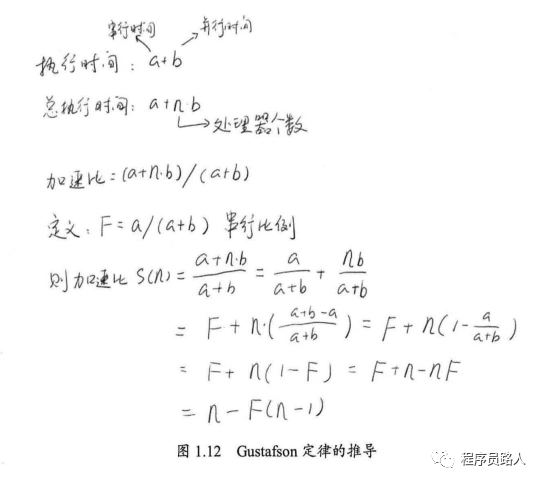 串行时间 并行时间
执行时间: a+b
总执行时间: a+n·b
处理器个数
加速比=(a+n·b)/(a+b)
定义: F=a/(a+b) 串行比例
则加速比 S(n)= \frac{a+n·b}{a+b} = \frac{a}{a+b} + \frac{nb}{a+b}
= F+n·(\frac{a+b-a}{a+b}) = F+n(1-\frac{a}{a+b})
= F+n(1-F) = F+n-nF
= n-F(n-1)
图 1.12 Gustafson 定律的推导
程序员路人